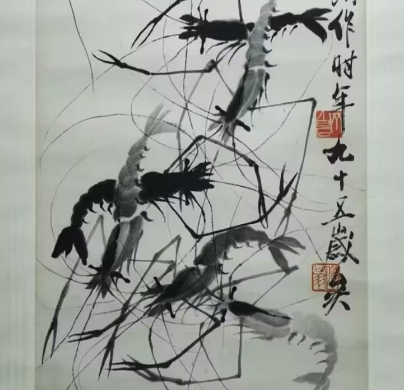 作时年九十五岁矣